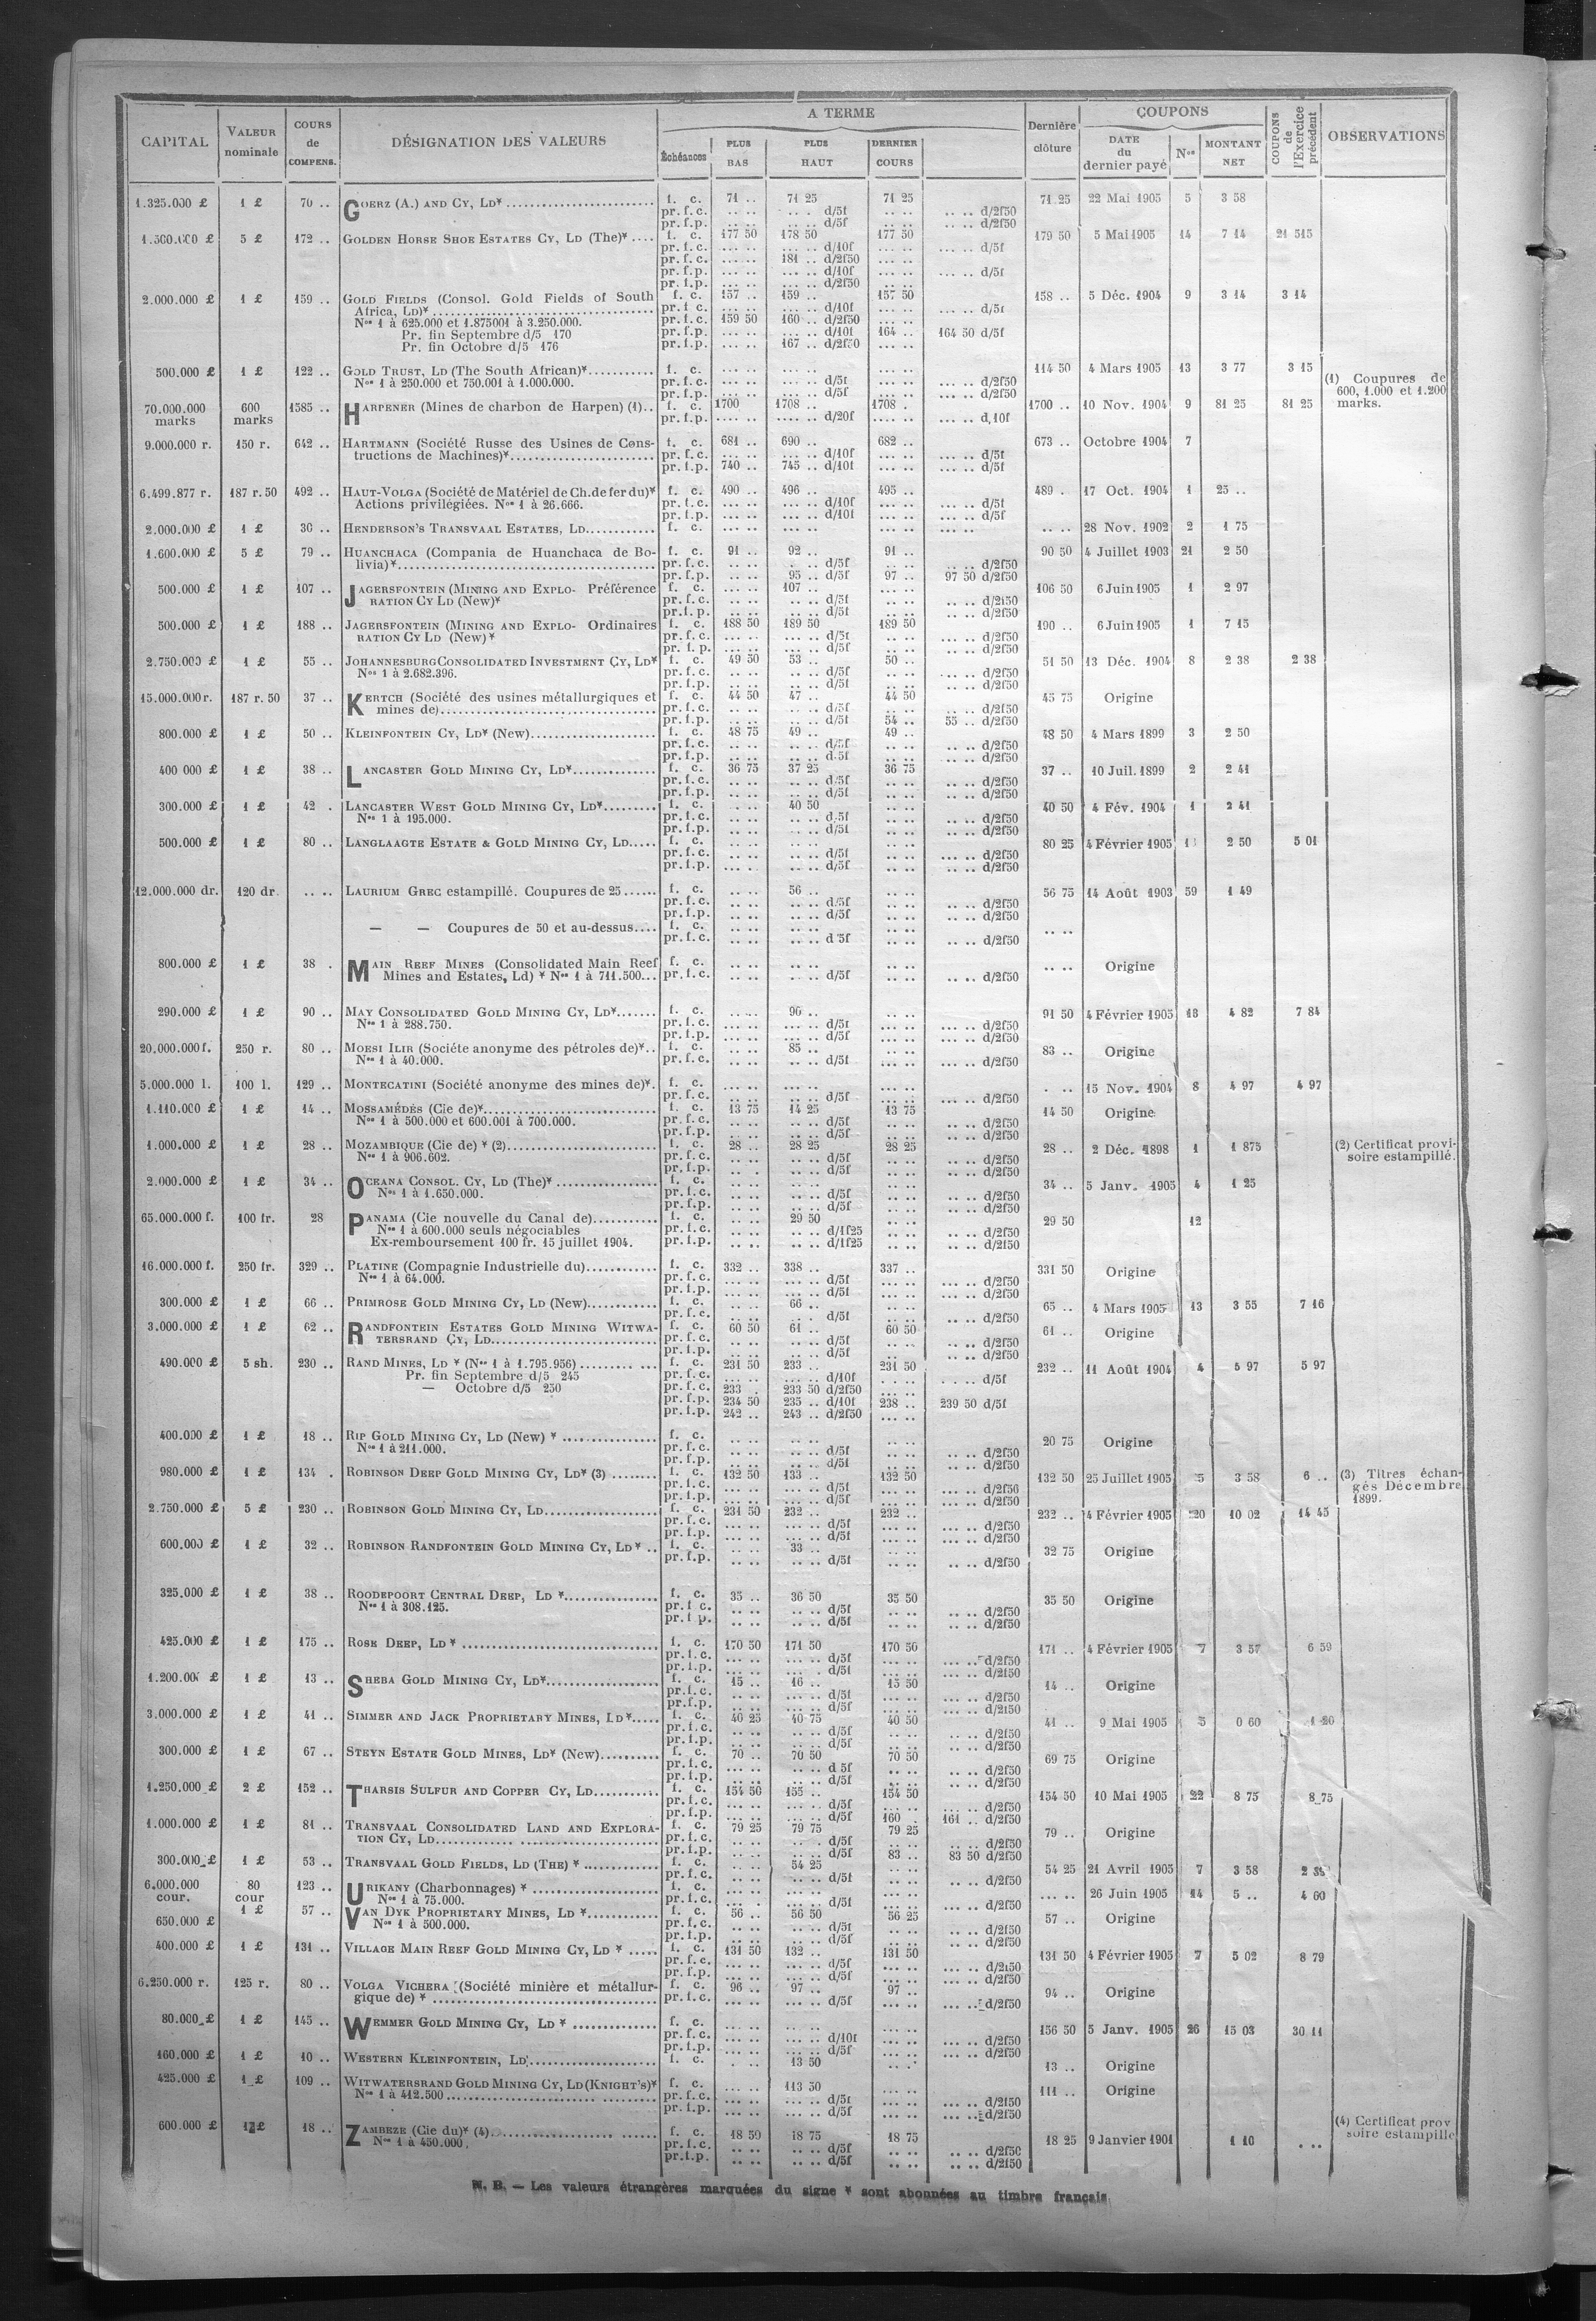 CAPITAL | VALEUR nominale | COURS de COMPENS. | DÉSIGNATION DES VALEURS | A TERME | Dernière clôture | COUPONS | COUPONS de l'Exercice précédent | OBSERVATIONS
Échéances | PLUS BAS | PLUS HAUT | DERNIER COURS | DATE du dernier payé | Nos | MONTANT NET
1.325.000 £ 1 £ 70 .. GOERZ (A.) AND CY, LD* f. c. 71 .. 71 25 71 25 71 25 22 Mai 1905 5 3 58
pr. f. c. .. .. .. . d/5f .. .. .. .. d/2f50
pr. f. p. .. .. .. .. d/5f .. .. .. .. d/2f50
1.500.000 £ 5 £ 172 .. GOLDEN HORSE SHOE ESTATES CY, LD (The)* .... f. c. 177 50 178 50 177 50 179 50 5 Mai 1905 14 7 14 21 515
pr. f. c. ... .. ... .. d/10f ... .. ... .. d/5f
pr. f. c. ... .. 181 .. d/2f50 ... ..
pr. f. p. ... .. ... .. d/10f ... .. ... .. d/5f
pr. f. p. ... .. ... .. d/2f50 ... ..
2.000.000 £ 1 £ 159 .. GOLD FIELDS (Consol. Gold Fields of South f. c. 157 .. 159 .. 157 50 158 .. 5 Déc. 1904 9 3 14 3 14
Africa, LD)* pr. f. c. ... .. ... .. d/10f ... .. ... .. d/5f
Nos 1 à 625.000 et 1.875001 à 3.250.000. pr. f. c. 159 50 160 .. d/2f50 ... ..
Pr. fin Septembre d/5 170 pr. f. p. ... .. ... .. d/10f 164 .. 164 50 d/5f
Pr. fin Octobre d/5 176 pr. f. p. ... .. 167 .. d/2f50 ... ..
500.000 £ 1 £ 122 .. GOLD TRUST, LD (The South African)* f. c. ... .. ... .. ... .. 114 50 4 Mars 1905 13 3 77 3 15
Nos 1 à 250.000 et 750.001 à 1.000.000. pr. f. c. ... .. ... .. d/5f ... .. ... .. d/2f50
pr. f. c. ... .. ... .. d/5f ... .. ... .. d/2f50
(1) Coupures de 600, 1.000 et 1.200 marks.
70.000.000 marks 600 marks 1585 .. HARPENER (Mines de charbon de Harpen) (1).. f. c. 1700 1708 .. 1708 . 1700 .. 10 Nov. 1904 9 81 25 81 25
pr. f. p. .... .. .... .. d/20f .... .. .... .. d,10f
9.000.000 r. 150 r. 642 .. HARTMANN (Société Russe des Usines de Cons- f. c. 681 .. 690 .. 682 .. 673 .. Octobre 1904 7
tructions de Machines)* pr. f. c. ... .. ... .. d/10f ... .. ... .. d/5f
pr. f. p. 740 .. 745 .. d/10f ... .. ... .. d/5f
6.499.877 r. 187 r. 50 492 .. HAUT-VOLGA (Société de Matériel de Ch. de fer du)* f. c. 490 .. 496 .. 495 .. 489 . 17 Oct. 1904 1 25 ..
Actions privilégiées. Nos 1 à 26.666. pr. f. c. ... .. ... .. d/10f ... .. ... .. d/5f
pr. f. p. ... .. ... .. d/10f ... .. ... .. d/5f
2.000.000 £ 1 £ 30 .. HENDERSON'S TRANSVAAL ESTATES, LD f. c. ... .. ... .. ... .. ... .. .. .. 28 Nov. 1902 2 1 75
1.600.000 £ 5 £ 79 .. HUANCHACA (Compania de Huanchaca de Bo- f. c. 91 .. 92 .. 91 .. 90 50 4 Juillet 1903 21 2 50
livia)* pr. f. c. .. .. .. . d/5f .. .. .. .. d/2f50
pr. f. p. .. .. 95 .. d/5f 97 .. 97 50 d/2f50
500.000 £ 1 £ 107 .. JAGERSFONTEIN (MINING AND EXPLO- Préférence f. c. ... .. 107 .. ... .. 106 50 6 Juin 1905 1 2 97
RATION CY LD (New)* pr. f. c. .. .. .. .. d/5f .. .. .. .. d/2f50
pr. f. p. .. .. .. .. d/5f .. .. .. .. d/2f50
500.000 £ 1 £ 188 .. JAGERSFONTEIN (MINING AND EXPLO- Ordinaires f. c. 188 50 189 50 189 50 190 .. 6 Juin 1905 1 7 15
RATION CY LD (New)* pr. f. c. ... .. ... .. d/5f ... .. ... .. d/2f50
pr. f. p. ... .. ... .. d/5f ... .. ... .. d/2f50
2.750.000 £ 1 £ 55 .. JOHANNESBURG CONSOLIDATED INVESTMENT CY, LD* f. c. 49 50 53 .. 50 .. 51 50 13 Déc. 1904 8 2 38 2 38
Nos 1 à 2.682.396. pr. f. c. .. .. .. .. d/5f .. .. .. .. d/2f50
pr. f. p. .. .. .. .. d/5f .. .. .. .. d/2f50
15.000.000 r. 187 r. 50 37 .. KERTCH (Société des usines métallurgiques et f. c. 44 50 47 .. 44 50 45 75 Origine
mines de) pr. f. c. .. .. .. .. d/5f .. .. .. .. d/2f50
pr. f. p. .. .. .. .. d/5f 54 .. 55 .. d/2f50
800.000 £ 1 £ 50 .. KLEINFONTEIN CY, LD* (New) f. c. 48 75 49 .. 49 .. 48 50 4 Mars 1899 3 2 50
pr. f. c. .. .. .. .. d/5f .. .. .. .. d/2f50
pr. f. p. .. .. .. .. d.5f .. .. .. .. d/2f50
400 000 £ 1 £ 38 .. LANCASTER GOLD MINING CY, LD* f. c. 36 75 37 25 36 75 37 .. 10 Juil. 1899 2 2 41
pr. f. c. .. .. .. .. d/5f .. .. .. .. d/2f50
pr. f. p. .. .. .. .. d/5f .. .. .. .. d/2f50
300.000 £ 1 £ 42 . LANCASTER WEST GOLD MINING CY, LD* f. c. .. .. 40 50 .. .. 40 50 4 Fév. 1904 1 2 41
Nos 1 à 195.000. pr. f. c. .. .. .. .. d.5f .. .. .. .. d/2f50
pr. f. p. .. .. .. .. d/5f .. .. .. .. d/2f50
500.000 £ 1 £ 80 .. LANGLAAGTE ESTATE & GOLD MINING CY, LD f. c. .. .. .. .. .. .. 80 25 4 Février 1905 2 50 5 01
pr. f. c. .. .. .. .. d/5f .. .. ... .. d/2f50
pr. f. p. .. .. .. .. d/5f .. .. ... .. d/2f50
12.000.000 dr. 120 dr. .. .. LAURIUM GREC estampillé. Coupures de 25 f. c. .. .. 56 .. .. .. 56 75 14 Août 1903 59 1 49
pr. f. c. .. .. .. .. d/5f .. .. .. .. d/2f50
pr. f. p. .. .. .. .. d/5f .. .. .. .. d/2f50
— — Coupures de 50 et au-dessus f. c. .. .. .. .. .. .. .. ..
pr. f. c. .. .. .. .. d 5f .. .. .. .. d/2f50
800.000 £ 1 £ 38 . MAIN REEF MINES (Consolidated Main Reef f. c. .. .. .. .. .. .. .. .. Origine
Mines and Estates, Ld) * Nos 1 à 711.500... pr. f. c. .. .. .. .. d/5f .. .. .. .. d/2f50
290.000 £ 1 £ 90 .. MAY CONSOLIDATED GOLD MINING CY, LD* f. c. .. .. 90 .. .. .. 91 50 4 Février 1905 18 4 82 7 84
Nos 1 à 288.750. pr. f. c. ... .. ... .. d/5f ... .. ... .. d/2f50
pr. f. p. ... .. ... .. d/5f ... .. ... .. d/2f50
20.000.000 f. 250 r. 80 .. MOESI ILIR (Sociéte anonyme des pétroles de)* f. c. .. .. 85 .. .. .. 83 .. Origine
Nos 1 à 40.000. pr. f. c. .. .. ... .. d/5f ... .. ... .. d/2f50
5.000.000 l. 100 l. 129 .. MONTECATINI (Société anonyme des mines de)*. f. c. ... .. ... .. ... .. . .. 15 Nov. 1904 8 4 97 4 97
pr. f. c. ... .. ... .. d/5f ... .. ... .. d/2f50
1.110.000 £ 1 £ 14 .. MOSSAMÉDÈS (Cie de)* f. c. 13 75 14 25 13 75 14 50 Origine
Nos 1 à 500.000 et 600.001 à 700.000. pr. f. c. .. .. .. .. d/5f .. .. .. .. d/2f50
pr. f. p. .. .. .. .. d/5f .. .. .. .. d/2f50
1.000.000 £ 1 £ 28 .. MOZAMBIQUE (Cie de) * (2) f. c. 28 .. 28 25 28 25 28 .. 2 Déc. 1898 1 1 875 (2) Certificat provi-
Nos 1 à 906.602. pr. f. c. .. .. .. .. d/5f .. .. .. .. d/2f50 soire estampillé.
pr. f. p. .. .. .. .. d/5f .. .. .. .. d/2f50
2.000.000 £ 1 £ 34 .. OCEANA CONSOL. CY, LD (The)* f. c. .. .. .. .. .. .. 34 .. 5 Janv. 1905 4 1 25
Nos 1 à 1.650.000. pr. f. c. .. .. .. .. d/5f .. .. .. .. d/2f50
pr. f. p. .. .. .. .. d/5f .. .. .. .. d/2f50
65.000.000 f. 100 fr. 28 PANAMA (Cie nouvelle du Canal de) f. c. .. .. 29 50 .. .. 29 50 12
Nos 1 à 600.000 seuls négociables pr. f. c. .. .. .. .. d/1f25 .. .. .. .. d/2f50
Ex-remboursement 100 fr. 15 juillet 1904. pr. f. p. .. .. .. .. d/1f25 .. .. .. .. d/2f50
16.000.000 f. 250 fr. 329 .. PLATINE (Compagnie Industrielle du) f. c. 332 .. 338 .. 337 .. 331 50 Origine
Nos 1 à 64.000. pr. f. c. ... .. ... .. d/5f ... .. ... .. d/2f50
pr. f. p. ... .. ... .. d/5f ... .. ... .. d/2f50
300.000 £ 1 £ 66 .. PRIMROSE GOLD MINING CY, LD (New) f. c. .. .. 66 .. .. .. 65 .. 4 Mars 1905 13 3 55 7 16
pr. f. c. .. .. .. . d/5f .. .. .. .. d/2f50
3.000.000 £ 1 £ 62 .. RANDFONTEIN ESTATES GOLD MINING WITWA- f. c. 60 50 61 .. 60 50 61 .. Origine
TERSRAND CY, LD pr. f. c. .. .. .. .. d/5f .. .. .. .. d/2f50
pr. f. c. .. .. .. .. d/5f .. .. .. .. d/2f50
490.000 £ 5 sh. 230 .. RAND MINES, LD * (Nos 1 à 1.795.956) f. c. 231 50 233 .. 231 50 232 .. 11 Août 1904 4 5 97 5 97
Pr. fin Septembre d/5 245 pr. f. c. ... .. ... .. d/10f . .. . . .. d/5f
— Octobre d/5 250 pr. f. c. 233 . 233 50 d/2f50 ... ..
pr. f. p. 234 50 235 .. d/10f 238 .. 239 50 d/5f
pr. f. p. 242 .. 243 .. d/2f50 ... ..
400.000 £ 1 £ 18 .. RIP GOLD MINING CY, LD (New) * f. c. .. .. .. .. .. .. 20 75 Origine
Nos 1 à 211.000. pr. f. c. .. .. .. .. d/5f .. .. .. .. d/2f50
pr. f. p. .. .. .. .. d/5f .. .. .. .. d/2f50
980.000 £ 1 £ 134 . ROBINSON DEEP GOLD MINING CY, LD* (3) f. c. 132 50 133 .. 132 50 132 50 25 Juillet 1905 5 3 58 6 .. (3) Titres échan-
pr. f. c. ... .. ... .. d/5f ... .. ... .. d/2f50 gés Décembre
pr. f. p. ... .. ... .. d/5f ... .. ... .. d/2f50 1899.
2.750.000 £ 5 £ 230 .. ROBINSON GOLD MINING CY, LD f. c. 231 50 232 .. 232 .. 232 .. 4 Février 1905 20 10 02 14 45
pr. f. c. ... .. ... .. d/5f ... .. ... .. d/2f50
pr. f. p. ... .. ... .. d/5f ... .. ... .. d/2f50
600.000 £ 1 £ 32 .. ROBINSON RANDFONTEIN GOLD MINING CY, LD * .. f. c. .. .. 33 .. .. .. 32 75 Origine
pr. f. p. .. .. ... .. d/5f ... .. .. .. d/2f50
325.000 £ 1 £ 38 .. ROODEPOORT CENTRAL DEEP, LD * f. c. 35 .. 36 50 35 50 35 50 Origine
Nos 1 à 308.125. pr. f c. .. .. .. .. d/5f .. .. .. .. d/2f50
pr. f p. .. .. .. .. d/5f .. .. .. .. d/2f50
425.000 £ 1 £ 175 .. ROSE DEEP, LD * f. c. 170 50 171 50 170 50 171 .. 4 Février 1905 7 3 57 6 59
pr. f. c. ... .. ... .. d/5f ... .. ... .. d/2f50
pr. f. p. ... .. ... . d/5f ... .. ... .. d/2f50
1.200.000 £ 1 £ 13 .. SHEBA GOLD MINING CY, LD* f. c. 15 .. 16 .. 15 50 14 .. Origine
pr. f. c. .. .. .. .. d/5f .. .. ... .. d/2f50
pr. f. p. .. .. .. .. d/5f .. .. ... .. d/2f50
3.000.000 £ 1 £ 41 .. SIMMER AND JACK PROPRIETARY MINES, LD* f. c. 40 25 40 75 40 50 41 .. 9 Mai 1905 5 0 60 1 20
pr. f. c. .. .. .. .. d/5f .. .. ... .. d/2f50
pr. f. p. .. .. .. .. d/5f .. .. ... .. d/2f50
300.000 £ 1 £ 67 .. STEYN ESTATE GOLD MINES, LD* (New) f. c. 70 .. 70 50 70 50 69 75 Origine
pr. f. c. ... .. ... .. d 5f .. .. .. .. d/2f50
pr. f. p. .. .. .. .. d/5f .. .. .. .. d/2f50
1.250.000 £ 2 £ 152 .. THARSIS SULFUR AND COPPER CY, LD f. c. 154 50 155 .. 154 50 154 50 10 Mai 1905 22 8 75 8 75
pr. f. c. ... .. ... .. d/5f ... .. ... .. d/2f50
pr. f. p. ... .. ... .. d/5f 160 . 161 .. d/2f50
1.000.000 £ 1 £ 81 .. TRANSVAAL CONSOLIDATED LAND AND EXPLORA- f. c. 79 25 79 75 79 25 79 .. Origine
TION CY, LD pr. f. c. .. .. .. . d/5f .. .. .. .. d/2f50
pr. f. p. .. .. .. .. d/5f 83 .. 83 50 d/2f50
300.000 £ 1 £ 53 .. TRANSVAAL GOLD FIELDS, LD (THE) * f. c. .. .. 54 25 .. .. 54 25 21 Avril 1905 7 3 58
pr. f. c. .. .. .. .. d/5f .. .. .. .. d/2f50
6.000.000 cour. 80 cour 123 .. URIKANY (Charbonnages) * f. c. ... .. ... .. ... .. ... .. 26 Juin 1905 14 5 .. 4 60
Nos 1 à 75.000. pr. f. c. ... .. ... . d/5f ... .. ... .. d/2f50
650.000 £ 1 £ 57 .. VAN DYK PROPRIETARY MINES, LD * f. c. 56 .. 56 50 56 25 57 .. Origine
Nos 1 à 500.000. pr. f. c. .. .. .. .. d/5f .. .. .. .. d/2f50
pr. f. p. .. .. .. .. d/5f .. .. .. .. d/2f50
400.000 £ 1 £ 131 .. VILLAGE MAIN REEF GOLD MINING CY, LD * f. c. 131 50 132 .. 131 50 131 50 4 Février 1905 7 5 02 8 79
pr. f. c. ... .. ... .. d/5f ... .. ... .. d/2f50
pr. f. p. ... .. ... .. d/5f ... .. ... .. d/2f50
6.250.000 r. 125 r. 80 .. VOLGA VICHERA (Société minière et métallur- f. c. 96 .. 97 .. 97 .. 94 .. Origine
gique de) * pr. f. c. ... .. ... .. d/5f ... .. ... .. d/2f50
80.000 £ 1 £ 145 .. WEMMER GOLD MINING CY, LD * f. c. ... .. ... .. ... .. 156 50 5 Janv. 1905 26 15 03 30 11
pr. f. c. ... .. ... .. d/10f ... .. ... .. d/2f50
pr. f. p. ... .. ... .. d/5f ... .. ... .. d/2f50
160.000 £ 1 £ 10 .. WESTERN KLEINFONTEIN, LD f. c. . .. 13 50 .. . 13 .. Origine
425.000 £ 1 £ 109 .. WITWATERSRAND GOLD MINING CY, LD (KNIGHT'S)* f. c. ... .. 113 50 ... .. 111 .. Origine
Nos 1 à 412.500 pr. f. c. ... .. ... .. d/5f ... .. ... .. d/2f50
pr. f. p. ... .. ... .. d/5f ... .. ... .. d/2f50
600.000 £ 1 £ 18 .. ZAMBEZE (Cie du)* (4) f. c. 18 50 18 75 18 75 18 25 9 Janvier 1901 1 10 . .. (4) Certificat prov
Nos 1 à 450.000. pr. f. c. .. .. .. .. d/5f .. .. .. .. d/2f50 soire estampillé
pr. f. p. .. .. .. .. d/5f .. .. .. .. d/2f50
N. B. — Les valeurs étrangères marquées du signe * sont abonnées au timbre français.